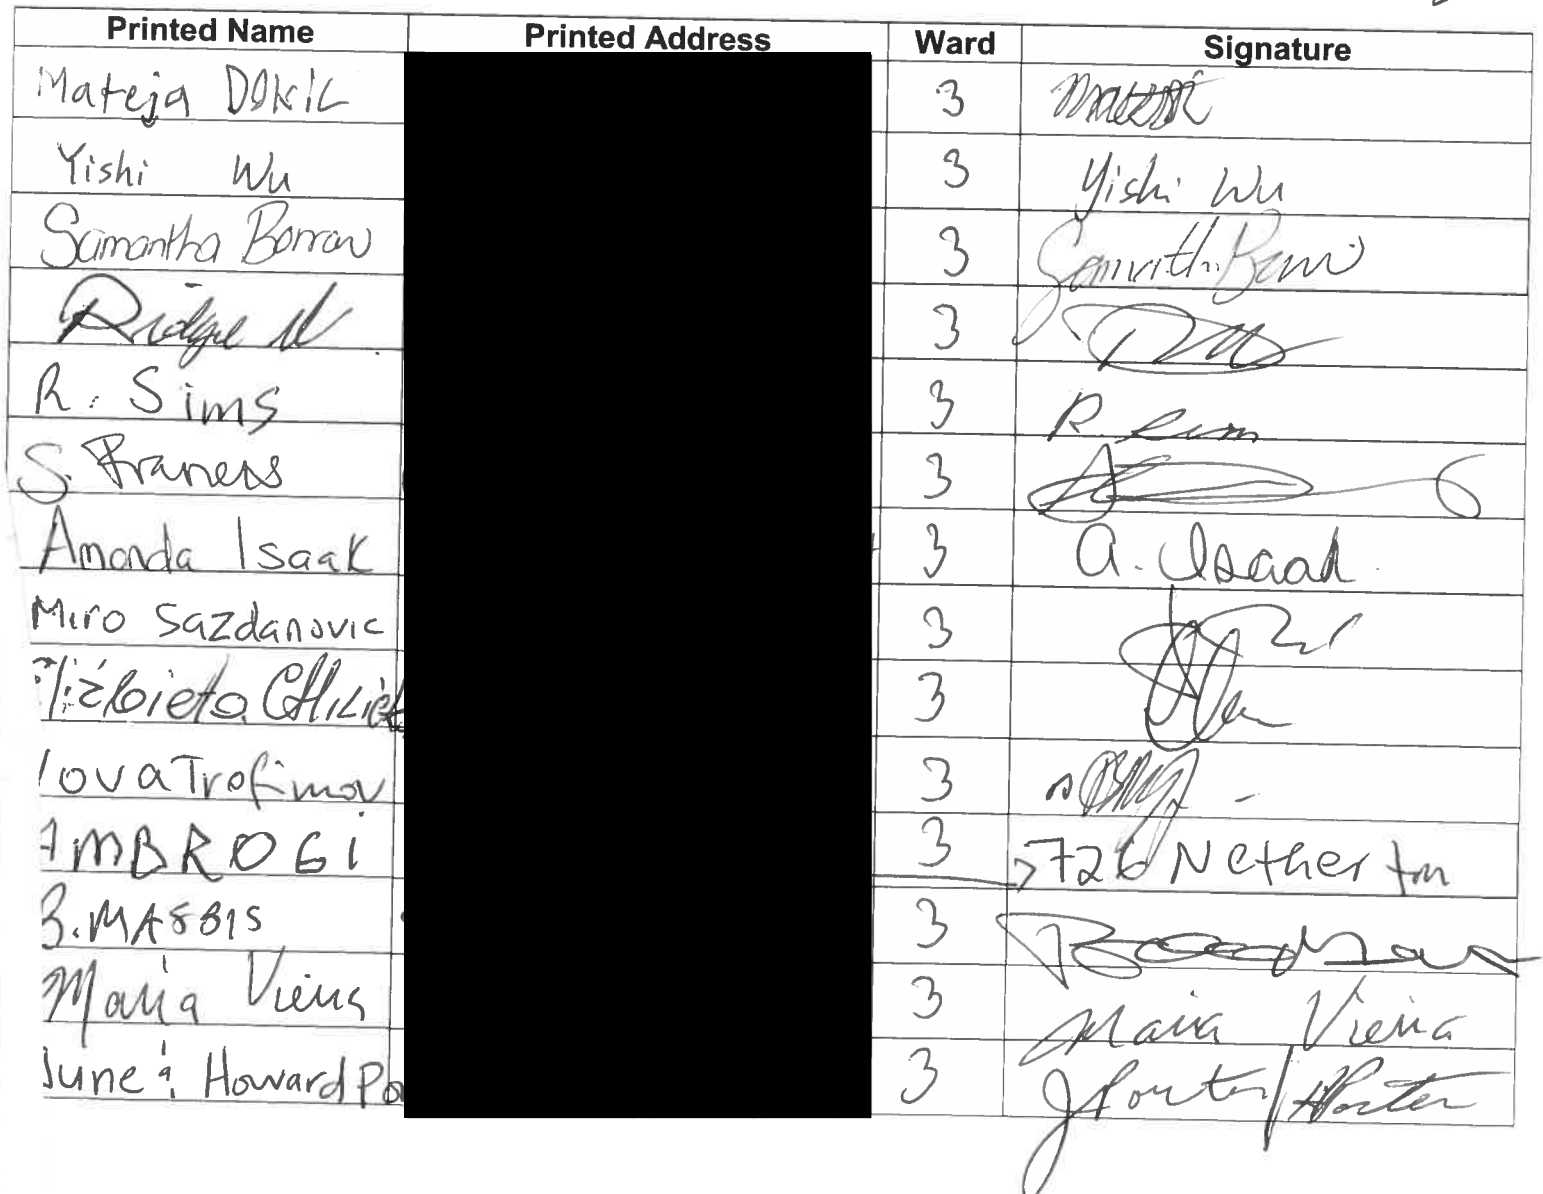 Printed Name Printed Address Ward Signature
Mateja DOKIC 3
Yishi Wu 3 Yishi Wu
Samantha Borrow 3
Ridge 3
R. Sims 3 R. Sims
S. Francis 3
Amanda Isaak 3 A. Isaak
Miro Sazdanovic 3
3
Trofimov 3
AMBROGI 3 726 Netherton
B. 3
Maria Vieira 3 Maria Vieira
June & Howard Po 3 J Porter/HPorter